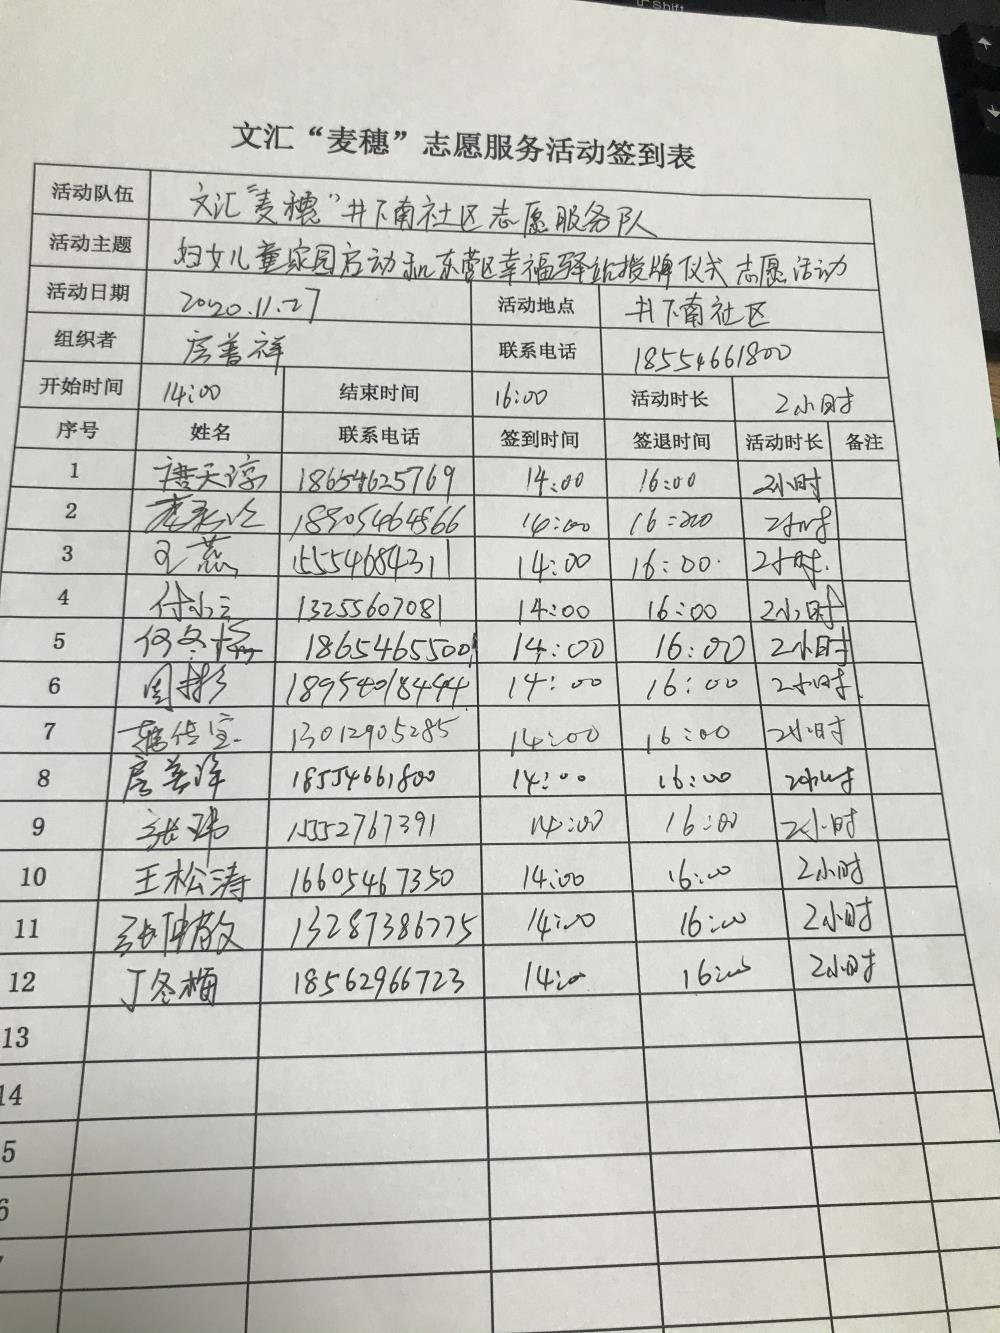 shift
文汇“麦穗”志愿服务活动签到表
活动队伍 文汇“麦穗”井下南社区志愿服务队
活动主题 妇女儿童家园启动和东营区幸福驿站授牌仪式志愿活动
活动日期 2020.11.27 活动地点 井下南社区
组织者 房善祥 联系电话 18554661800
开始时间 14:00 结束时间 16:00 活动时长 2小时
序号 姓名 联系电话 签到时间 签退时间 活动时长 备注
1 18654625769 14:00 16:00 2小时
2 18905464866 14:00 16:00 2小时
3 王燕 15554684311 14:00 16:00 2小时.
4 13255607081 14:00 16:00 2小时
5 何冬梅 18654655001 14:00 16:00 2小时
6 周彬 18954018444 14:00 16:00 2小时
7 韩传宝 13012905285 14:00 16:00 2小时
8 房善祥 18554661800 14:00 16:00 2小时
9 张玮 15552767391 14:00 16:00 2小时
10 王松涛 16605467350 14:00 16:00 2小时
11 张仲敬 13287386775 14:00 16:00 2小时
12 丁冬梅 18562966723 14:00 16:00 2小时
13
14
5
6